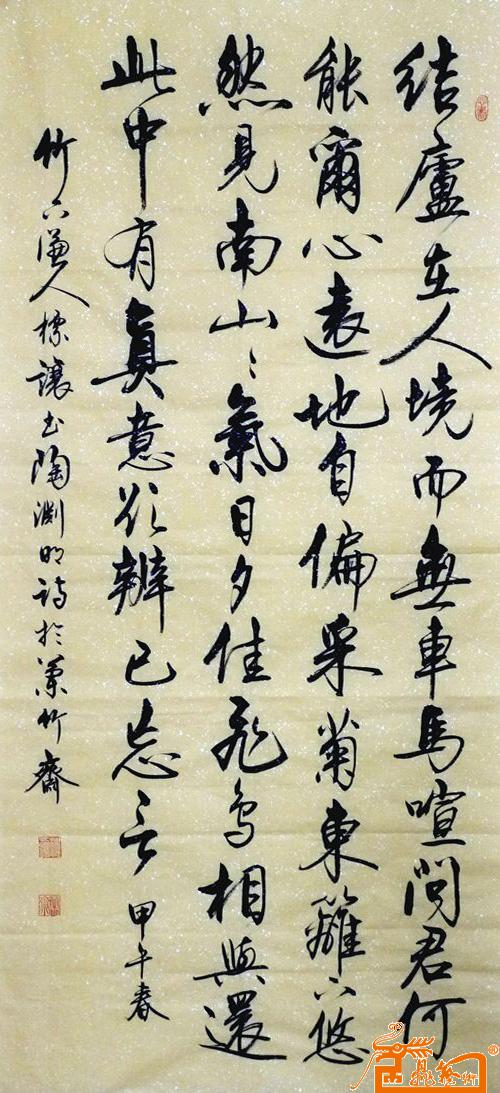 結廬在人境而無車馬喧問君何
能爾心遠地自偏采菊東籬下悠
然見南山〻氣日夕佳飛鳥相與還
此中有真意欲辨已忘言 甲午春
竹下 人標讓書陶淵明詩於蘭竹齋